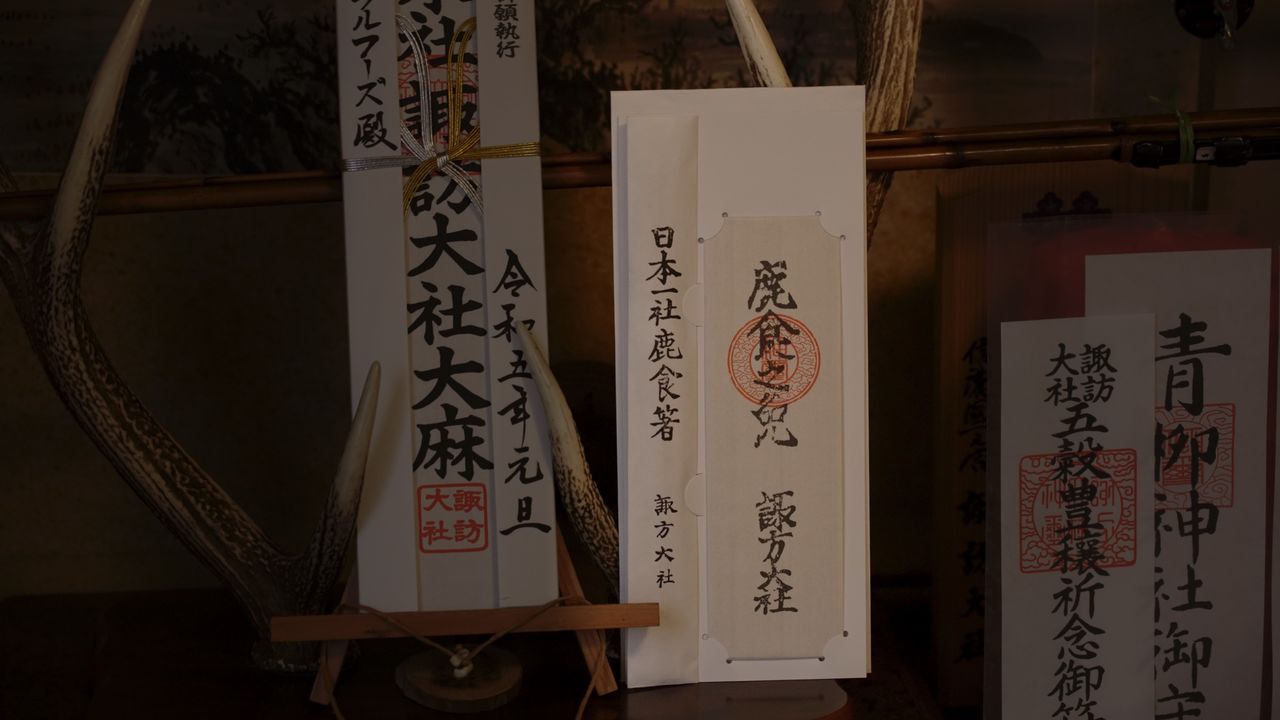 領執行
令和五年元旦
社諏訪大社大麻
諏訪大社
ルフーズ殿
鹿食之免　諏方大社
日本一社鹿食箸　諏方大社
青柳神社御
諏訪大社五穀豊穣祈念御